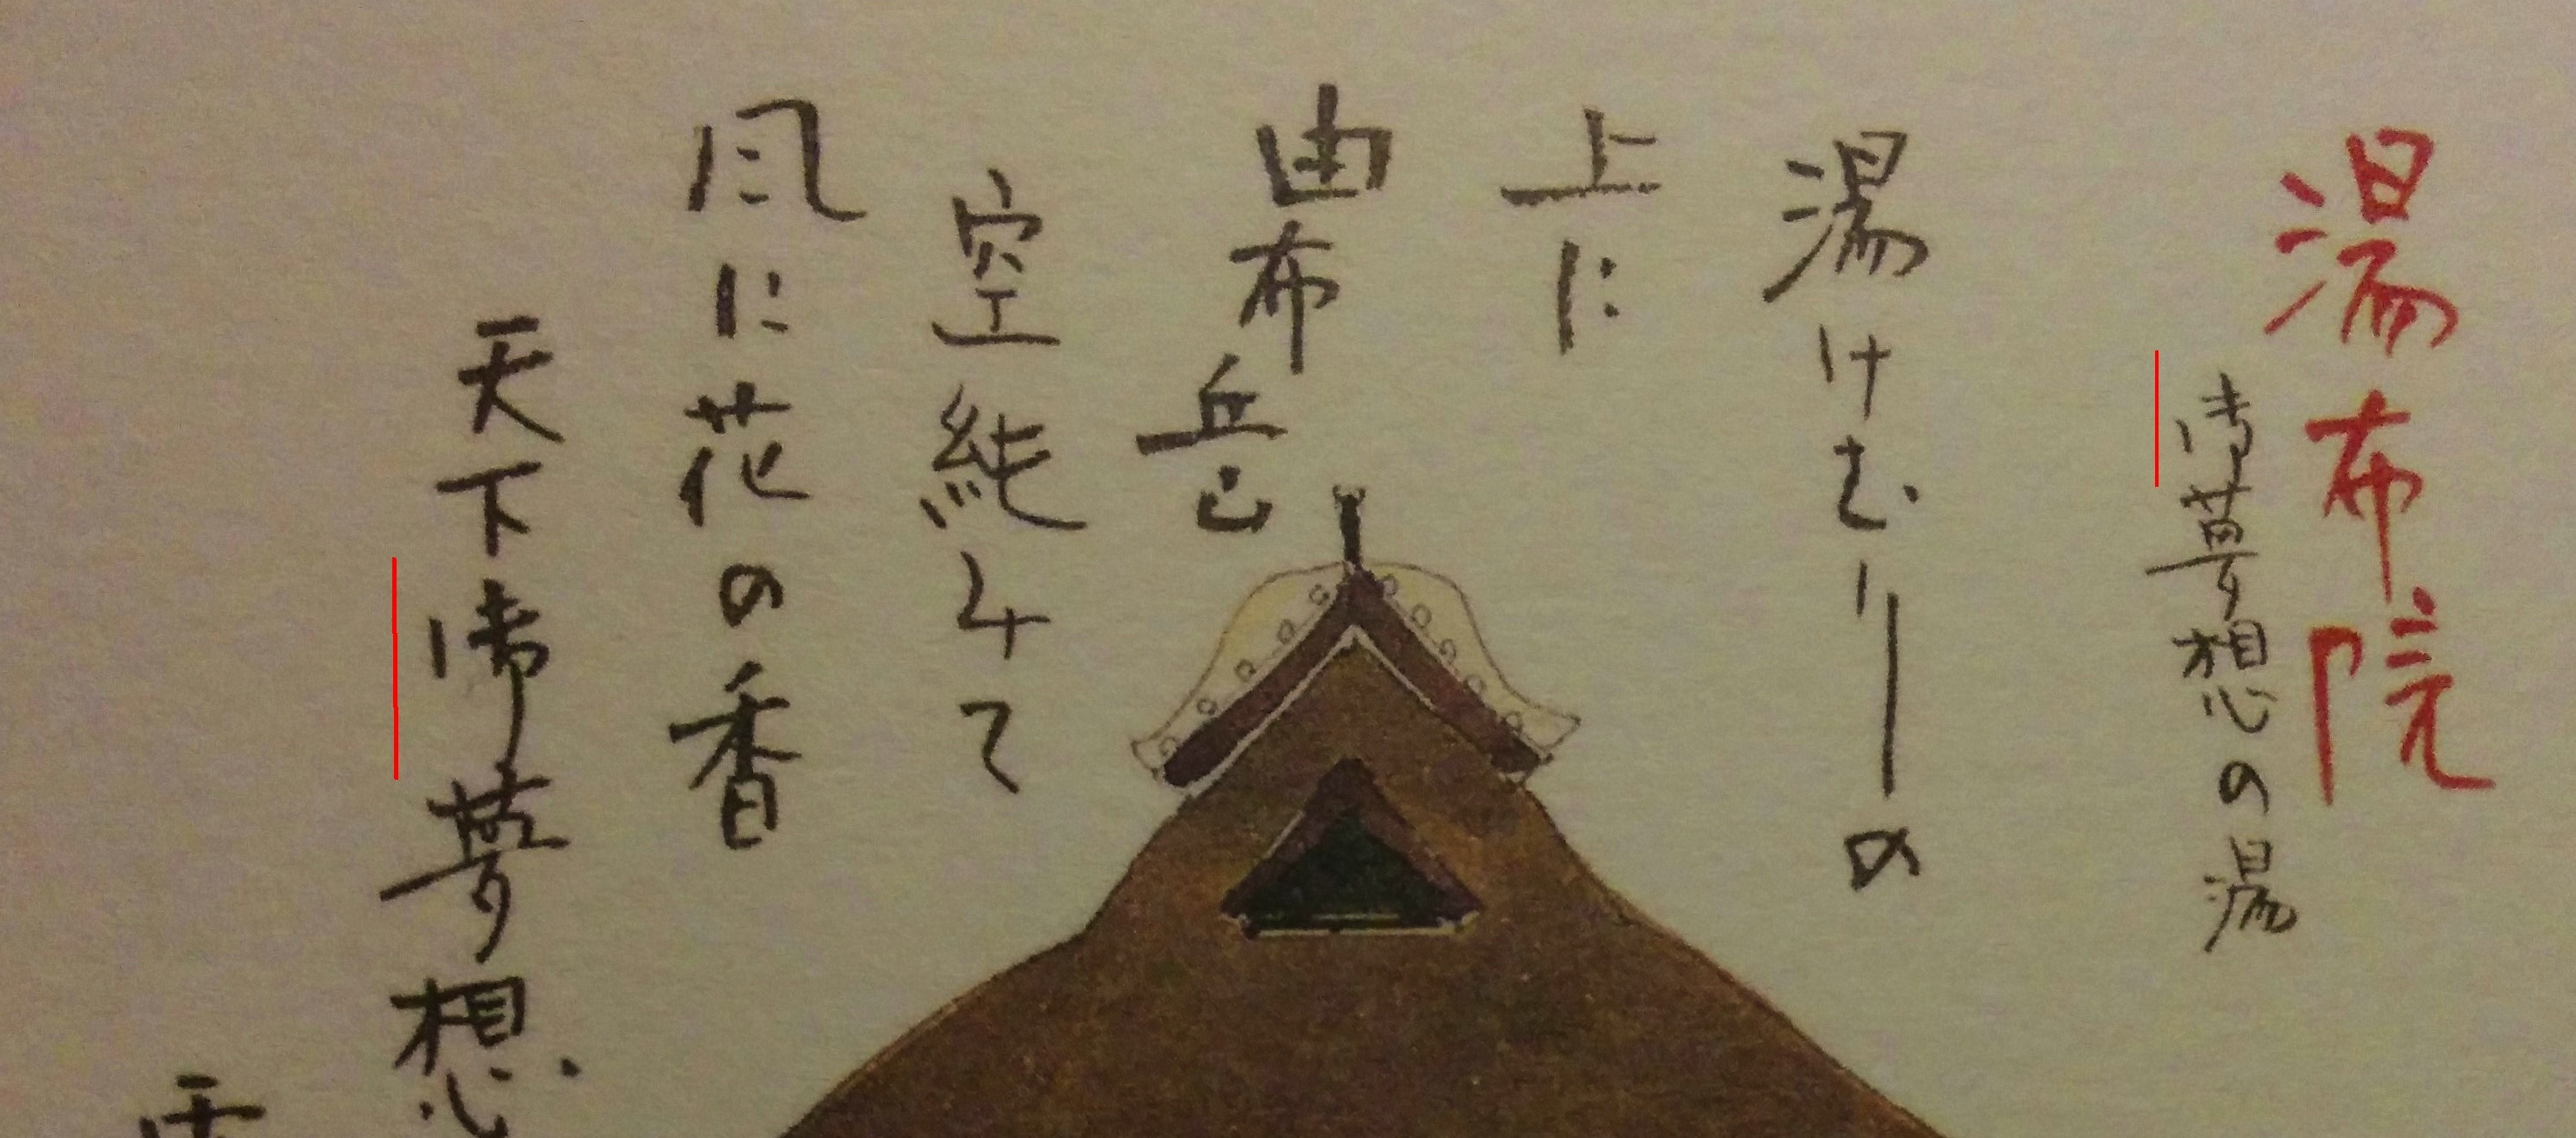 湯布院
御夢想の湯
湯けむりの
上に
由布岳
空純みて
風に花の香
天下御夢想